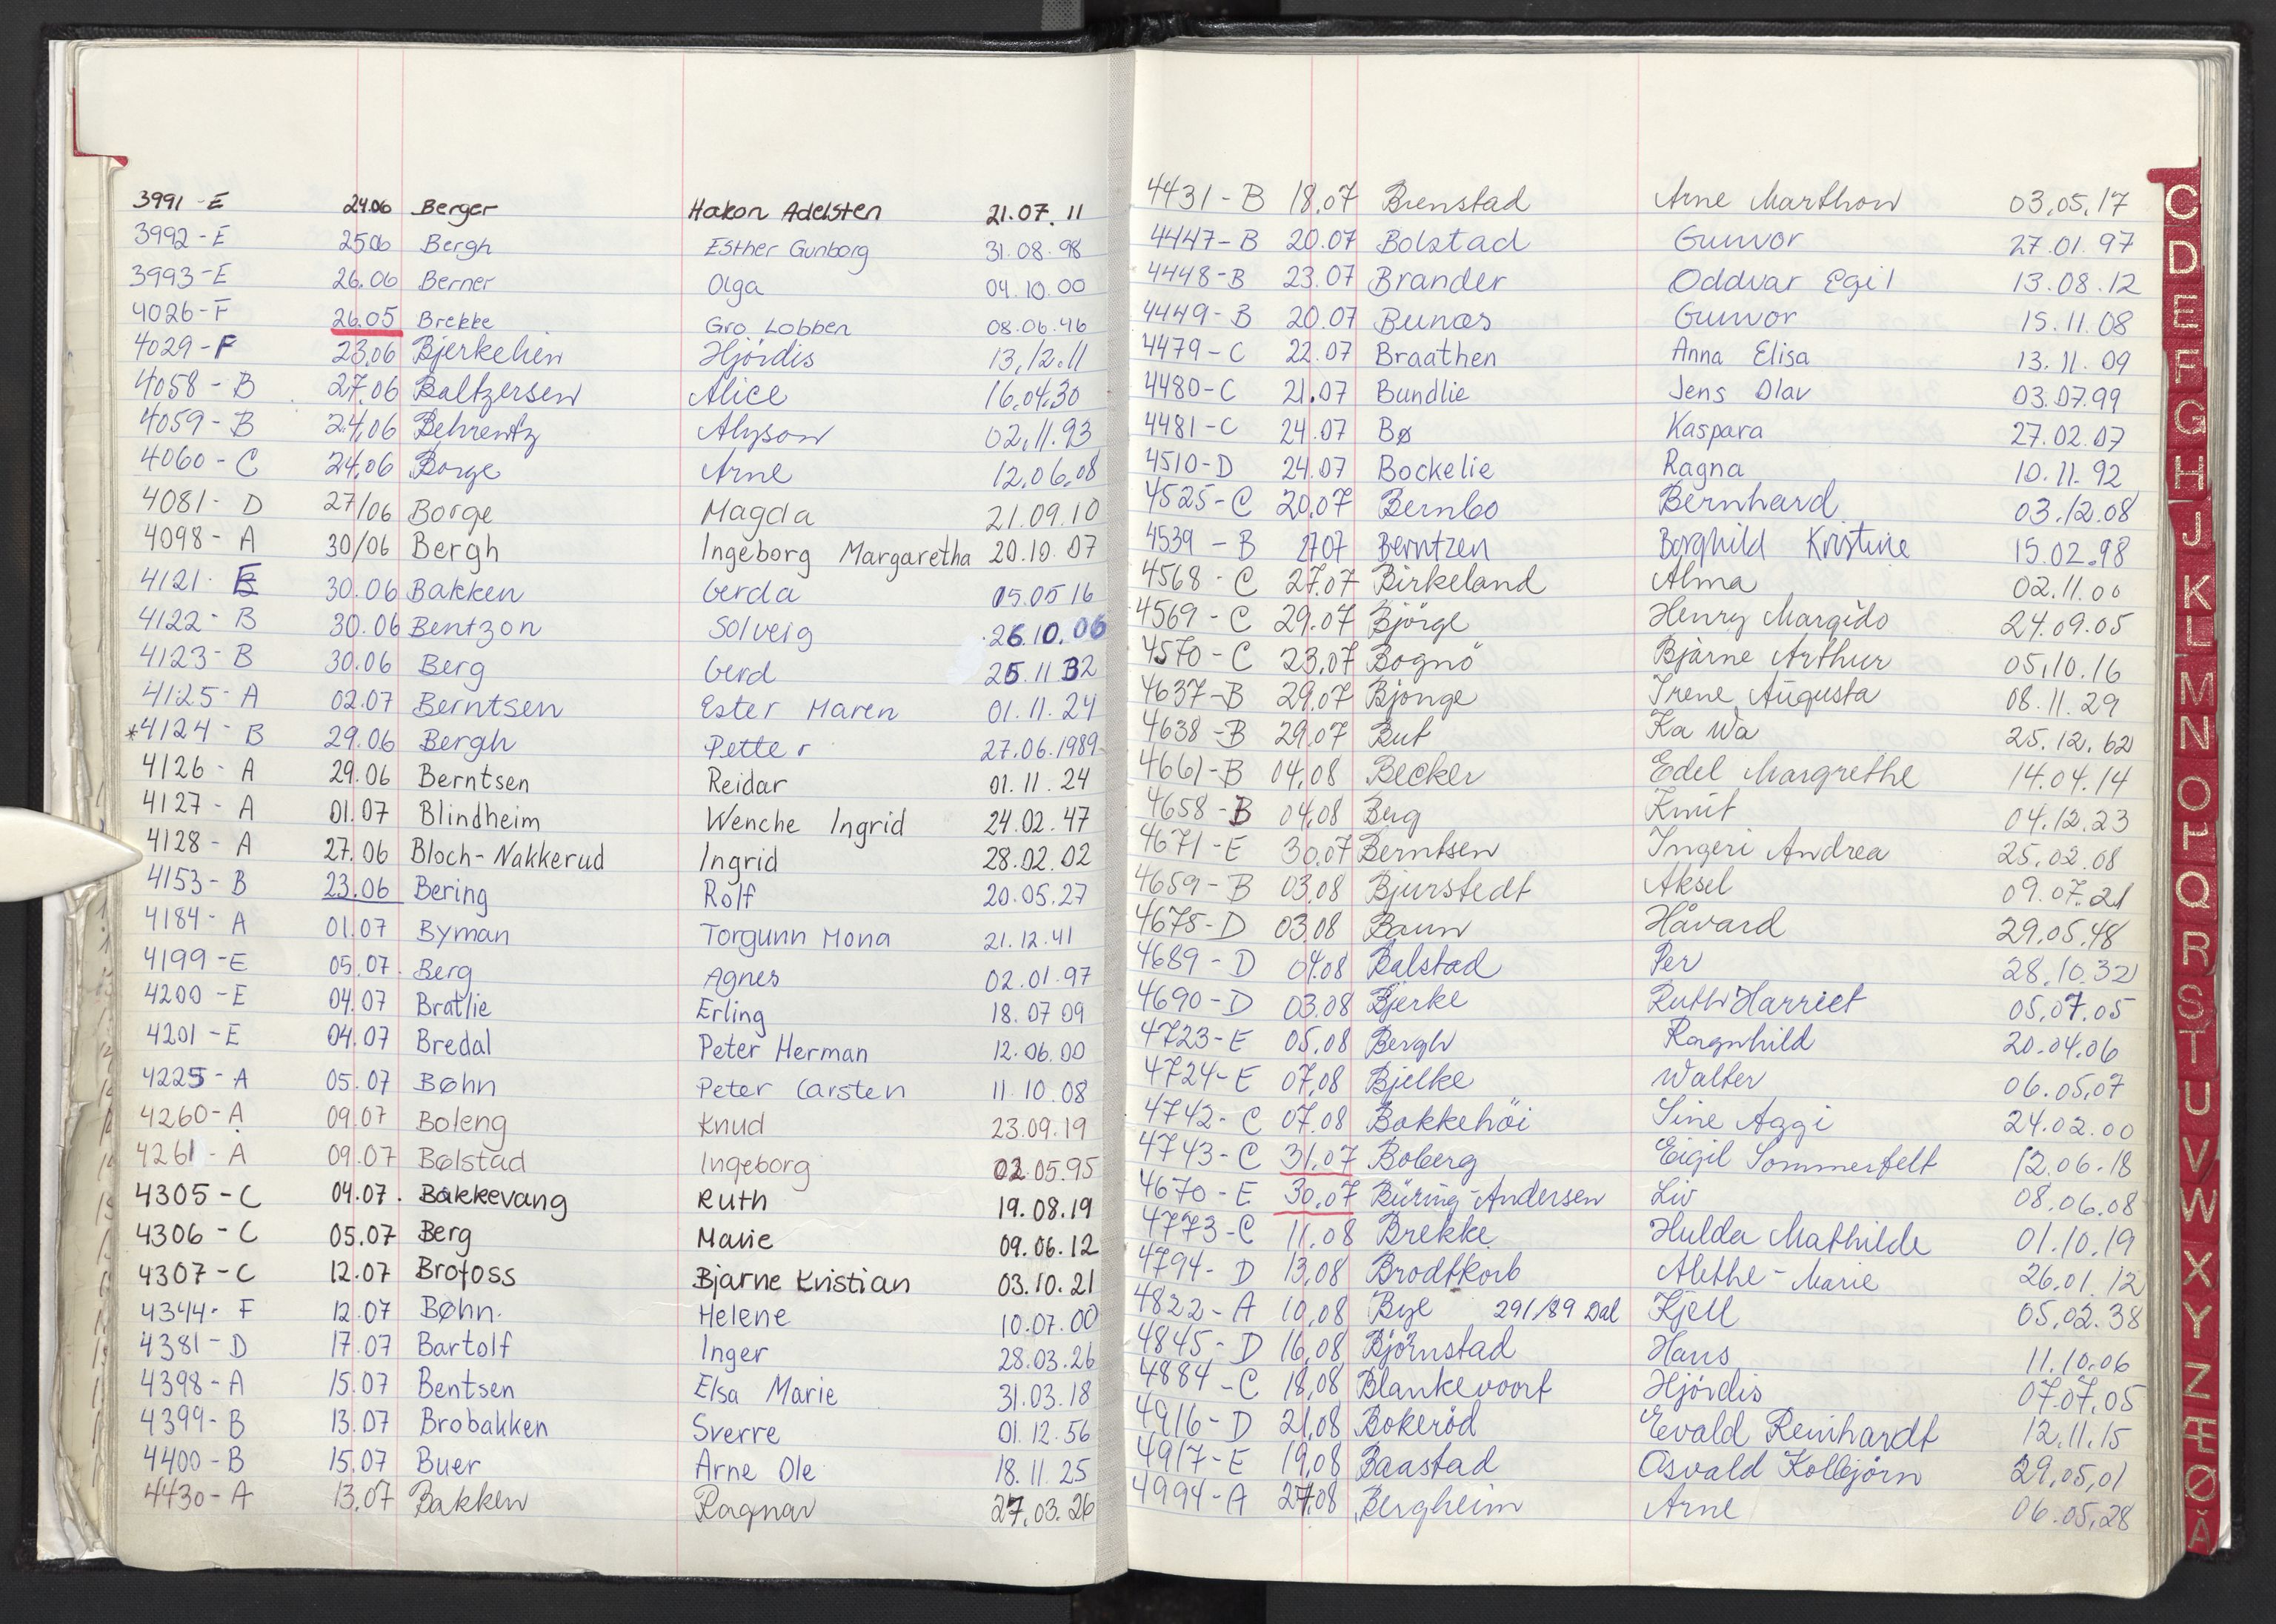 3991-E 24.06 Berger Hakon Adelsten 21.07.11
3992-E 25.06 Bergh Esther Gunborg 31.08.98
3993-E 26.06 Berner Olga 04.10.00
4026-F 26.05 Brekke Gro Lobben 08.06.46
4029-F 23.06 Bjerkelien Hjördis 13.12.11
4058-B 27.06 Baltzersen Alice 16.04.30
4059-B 24.06 Behrentz Alyson 02.11.93
4060-C 24.06 Borge Arne 12.06.08
4081-D 27/06 Borge Magda 21.09.10
4098-A 30/06 Bergh Ingeborg Margaretha 20.10.07
4121- 30.06 Bakken Gerda 05.05 16
4122-B 30.06 Bentzon Solveig 26.10.06
4123-B 30.06 Berg Gerd 25.11 32
4125-A 02.07 Berntsen Ester Maren 01.11.24
*4124-B 29.06 Bergh Petter 27.06.1989
4126-A 29.06 Berntsen Reidar 01.11.24
4127-A 01.07 Blindheim Wenche Ingrid 24.02.47
4128-A 27.06 Bloch-Nakkerud Ingrid 28.02.02
4153-B 23.06 Bering Rolf 20.05.27
4184-A 01.07 Byman Torgunn Mona 21.12.41
4199-E 05.07. Berg Agnes 02.01.97
4200-E 04.07 Bratlie Erling 18.07 09
4201-E 04.07 Bredal Peter Herman 12.06.00
4225-A 05.07 Bøhn Peter Carsten 11.10.08
4260-A 09.07 Boleng Knud 23.09.19
4261-A 09.07 Bolstad Ingeborg 02.05.95
4305-C 04.07. Bakkevang Ruth 19.08.19
4306-C 05.07 Berg Marie 09.06.12
4307-C 12.07 Brofoss Bjarne Kristian 03.10.21
4344-F 12.07 Bøhn. Helene 10.07.00
4381-D 17.07 Bartolf Inger 28.03.26
4398-A 15.07 Bentsen Elsa Marie 31.03.18
4399-B 13.07 Brobakken Sverre 01.12.56
4400-B 15.07 Buer Arne Ole 18.11.25
4430-A 13.07 Bakken Ragnar 27.03.26
4431-B 18.07 Brenstad Arne Marthon 03.05.17
4447-B 20.07 Bolstad Gunvor 27.01.97
4448-B 23.07 Brander Oddvar Egil 13.08.12
4449-B 20.07 Bunæs Gunvor 15.11.08
4479-C 22.07 Braathen Anna Elisa 13.11.09
4480-C 21.07 Bundlie Jens Olav 03.07.99
4481-C 24.07 Bø Kaspara 27.02.07
4510-D 24.07 Bockelie Ragna 10.11.92
4525-C 20.07 Bernbo Bernhard 03.12.08
4539-B 2707 Berntzen Borghild Kristine 15.02.98
4568-C 27.07 Birkeland Alma 02.11.00
4569-C 29.07 Björge Henry Margido 24.09.05
4570-C 23.07 Bognö Bjarne Arthur 05.10.16
4637-B 29.07 Bjonge Irene Augusta 08.11.29
4638-B 29.07 But Ka Wa 25.12.62
4661-B 04.08 Becker Edel Margrethe 14.04.14
4658-B 04.08 Berg Knut 04.12.23
4671-E 30.07 Berntsen Ingeri Andrea 25.02.08
4659-B 03.08 Bjurstedt Aksel 09.07.21
4675-D 03.08 Baun Håvard 29.05.48
4689-D 04.08 Balstad Per 28.10.32
4690-D 03.08 Bjerke Ruth Harriet 05.07.05
4723-E 05.08 Bergh Ragnhild 20.04.06
4724-E 07.08 Bjelke Walter 06.05.07
4742-C 07.08 Bakkehöi Sine Aggi 24.02.00
4743-C 31.07 Boberg Eigil Sommerfelt 12.06.18
4670-E 30.07 Büring-Andersen Liv 08.06.08
4773-C 11.08 Brekke Hulda Mathilde 01.10.19
4794-D 13.08 Brodtkorb Alethe-Marie 26.01.12
4822-A 10.08 Bye 291/89 Dal Kjell 05.02.38
4845-D 16.08 Björnstad Hans 11.10.06
4884-C 18.08 Blankevoort Hjördis 07.07.05
4916-D 21.08 Bokeröd Evald Reinhardt 12.11.15
4917-E 19.08 Baastad Osvald Kolbjörn 29.05.01
4994-A 27.08 Bergheim Arne 06.05.28
C
D
E
F
G
H
J
K
L
M
N
O
P
Q
R
S
T
U
V
W
X
Y
Z
Æ
Ø
Å